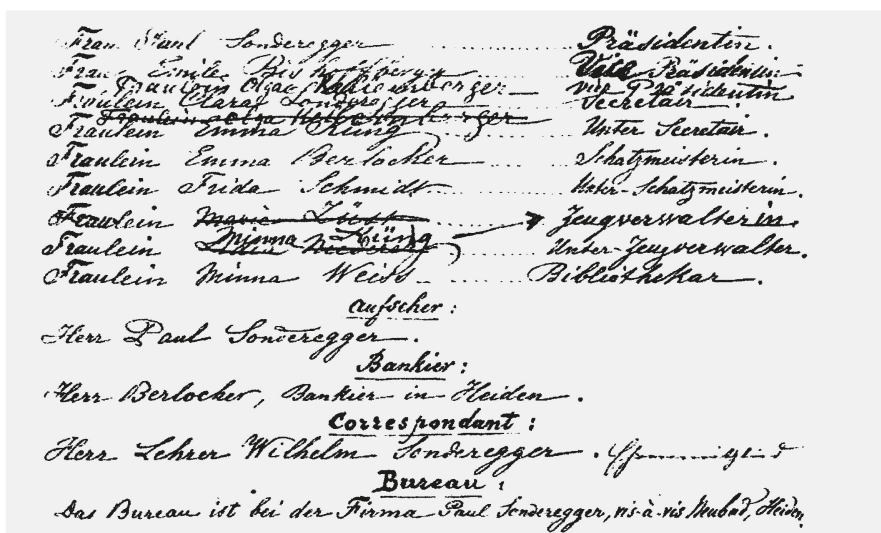 Frau Paul Sonderegger ............ Präsidentin.
Frau Emile ............ Vice Präsidentin
Fräulein Olga ... vice Präsidentin
Fräulein Clara Sonderegger ... Secretair.
Fräulein Olga
Fräulein Emma Küng ............ Unter Secretair.
Fraulein Emma Berlocker ............ Schatzmeisterin.
Fraulein Frida Schmidt ............ Unter-Schatzmeisterin.
Fraulein Marie Züst ............ Zeugverwalterin.
Minna Küng
Fraulein ............ Unter-Zeugverwalter.
Fraulein Minna Weiss ............ Bibliothekar.
Aufseher:
Herr Paul Sonderegger.
Bankier:
Herr Berlocher, Bankier in Heiden.
Correspondant:
Herr Lehrer Wilhelm Sonderegger.
Bureau:
Das Bureau ist bei der Firma Paul Sonderegger, vis-à-vis Neubad, Heiden.